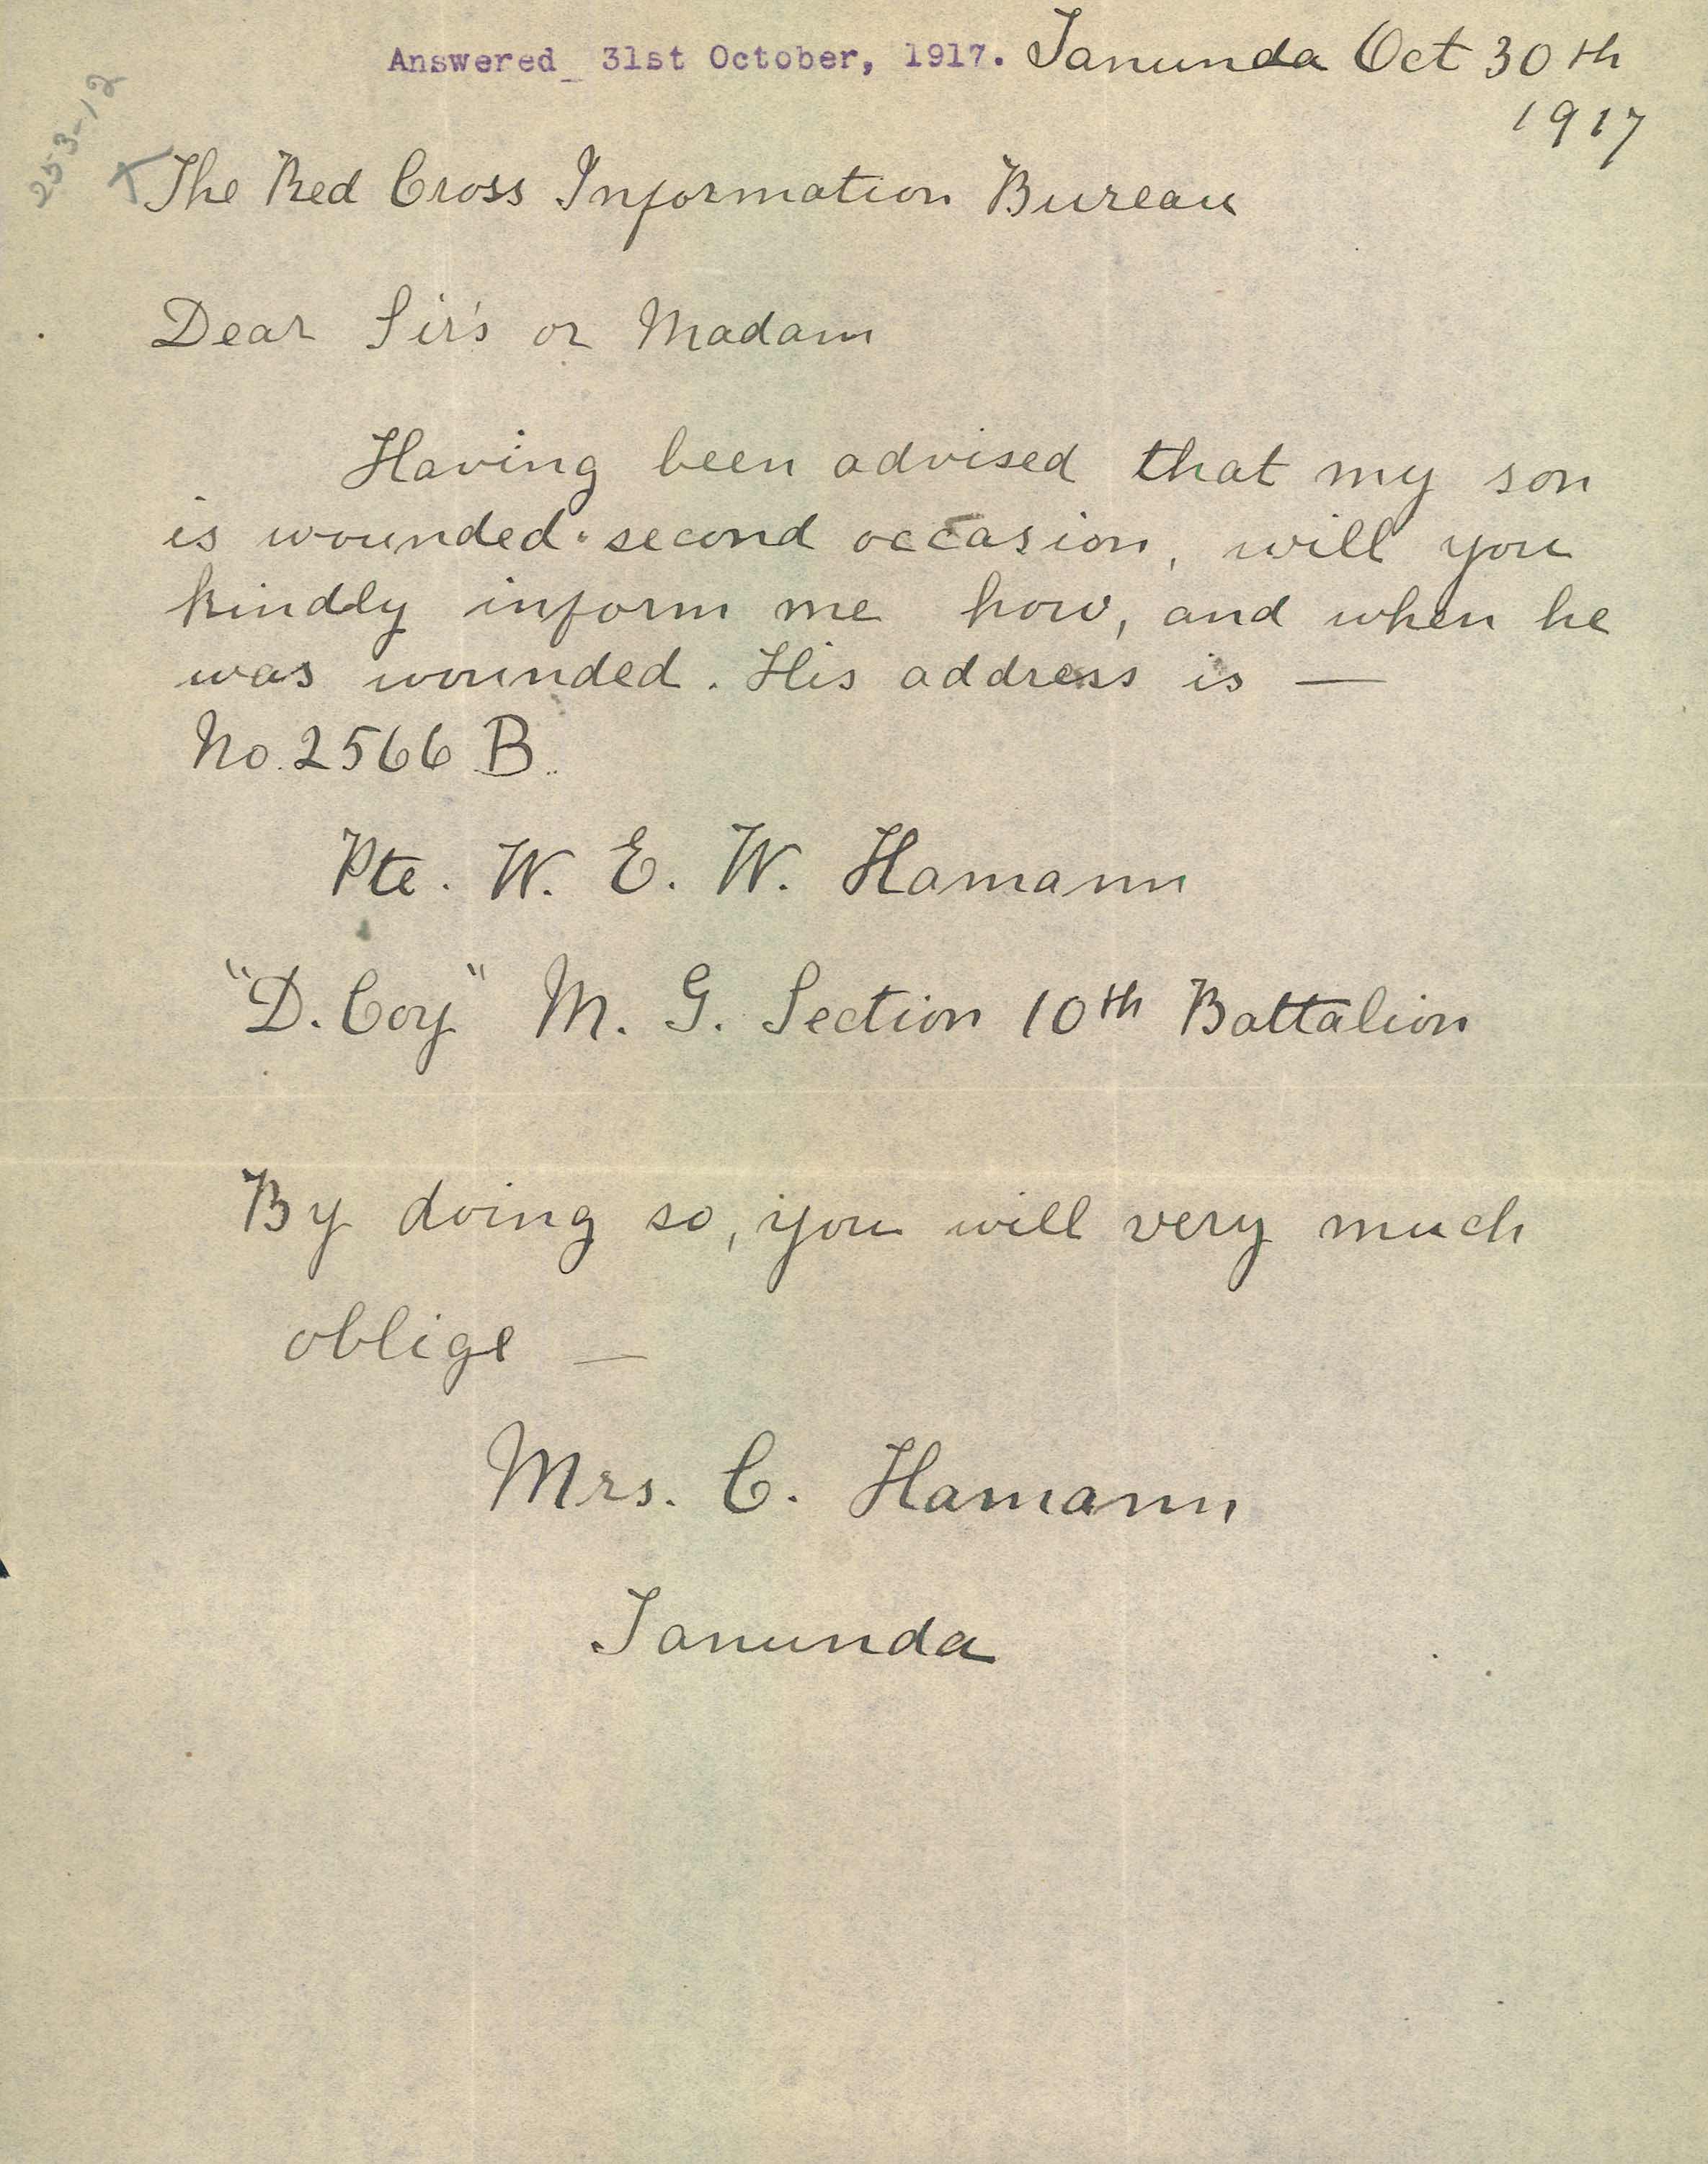 Answered_ 31st October, 1917. Tanunda Oct 30th
1917
253-12
The Red Cross Information Bureau
Dear Sir's or Madam
Having been advised that my son
is wounded. second occasion, will you
kindly inform me how, and when he
was wounded. His address is —
No. 2566 B.
Pte. W. E. W. Hamann
"D. Coy" M. G. Section 10th Battalion
By doing so, you will very much
oblige —
Mrs. C. Hamann,
Tanunda